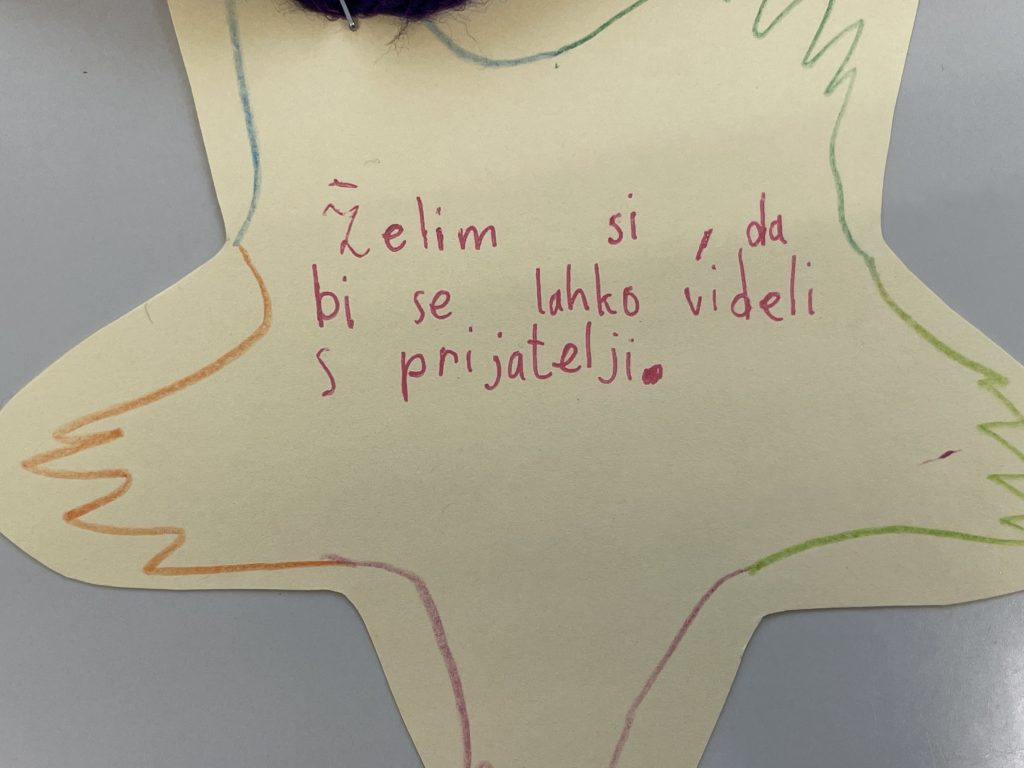 Želim si, da
bi se lahko videli
s prijatelji.